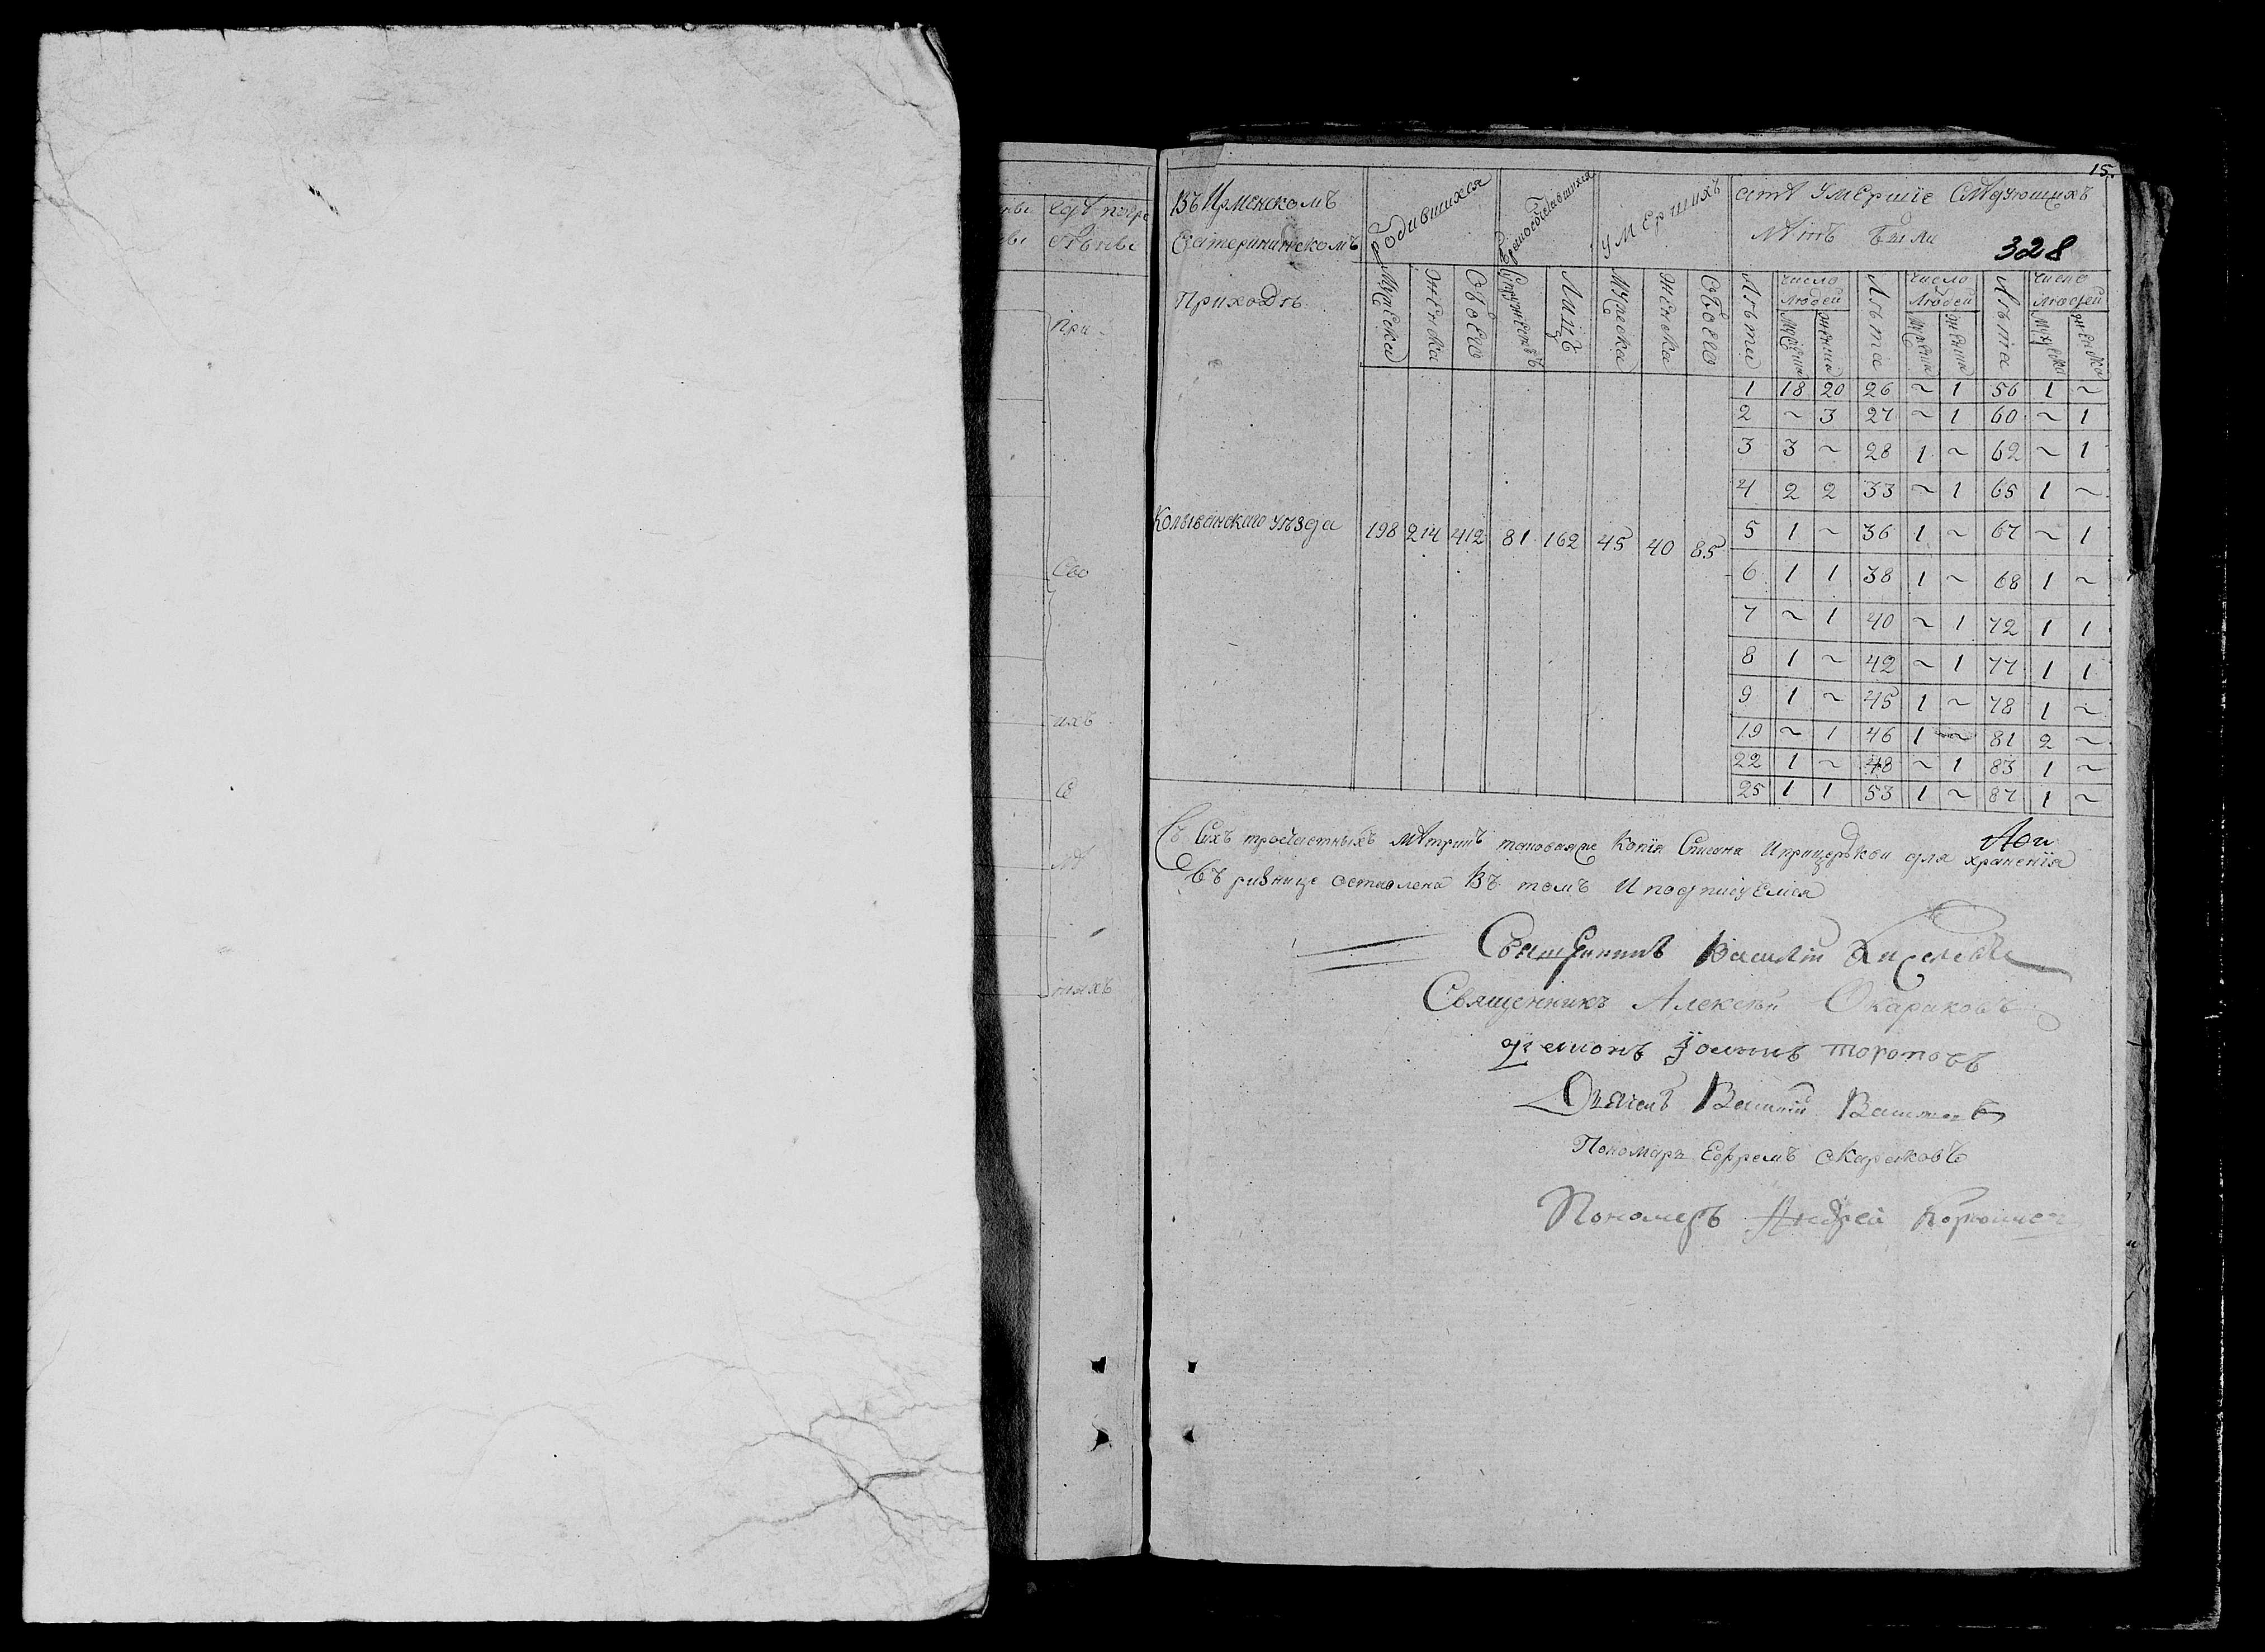 15.
Въ Ирменскомъ
Екатерининскомъ
Приходѣ
Родившихся
Бракосочетавшихся
Умершихъ
а тѣ умершіе слѣдующихъ
лѣтъ были
328
Мужеска
Женска
Обоего
Супружествъ
Лицъ
Мужеска
Женска
Обоего
Лѣта
число людей
Мужеска
женска
Лѣта
число людей
Мужеска
женска
Лѣта
число людей
Мужеска
женска
Колыванскаго уѣзда 198 214 412 81 162 45 40 85
1 18 20 26 ~ 1 56 1 ~
2 ~ 3 27 ~ 1 60 ~ 1
3 3 ~ 28 1 ~ 62 ~ 1
4 2 2 33 ~ 1 65 1 ~
5 1 ~ 36 1 ~ 67 ~ 1
6 1 1 38 1 ~ 68 1 ~
7 ~ 1 40 ~ 1 72 1 1
8 1 ~ 42 ~ 1 77 1 1
9 1 ~ 45 1 ~ 78 1 ~
19 ~ 1 46 1 ~ 81 2 ~
22 1 ~ 48 ~ 1 83 1 ~
25 1 1 53 1 ~ 87 1 ~
Съ сихъ троечастныхъ метрикъ таковаяже копія списана и при церькви для хранения
въ ризнице оставлена въ томъ и подписуемся
Священникъ Василій Киселевъ
Священникъ Алексѣй Скариковъ
діаконъ Іоаннъ Тороповъ
Дьячекъ Василій
Пономарь Ефремъ Скариковъ
Пономарь Андрей
При-
ихъ